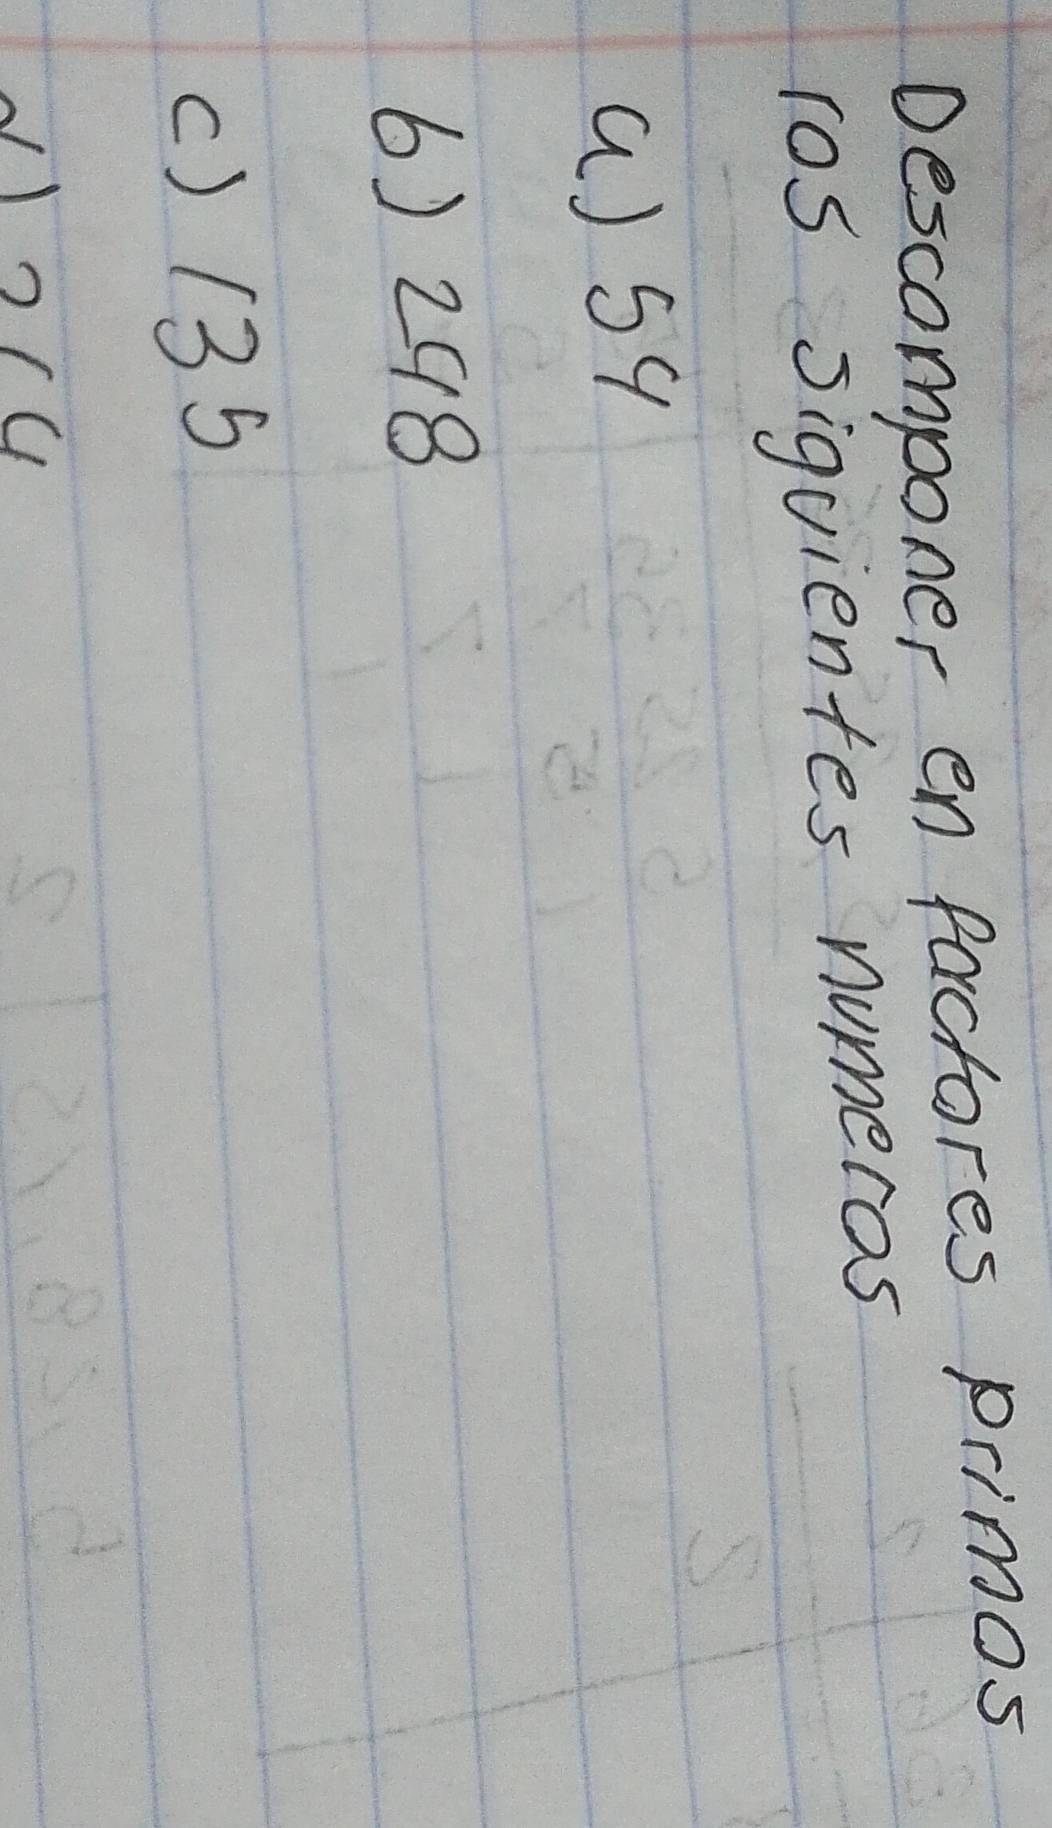 Descomponer en factores primos
los siguientes numeros
a) 54
b) 248
c) 135
d) 214